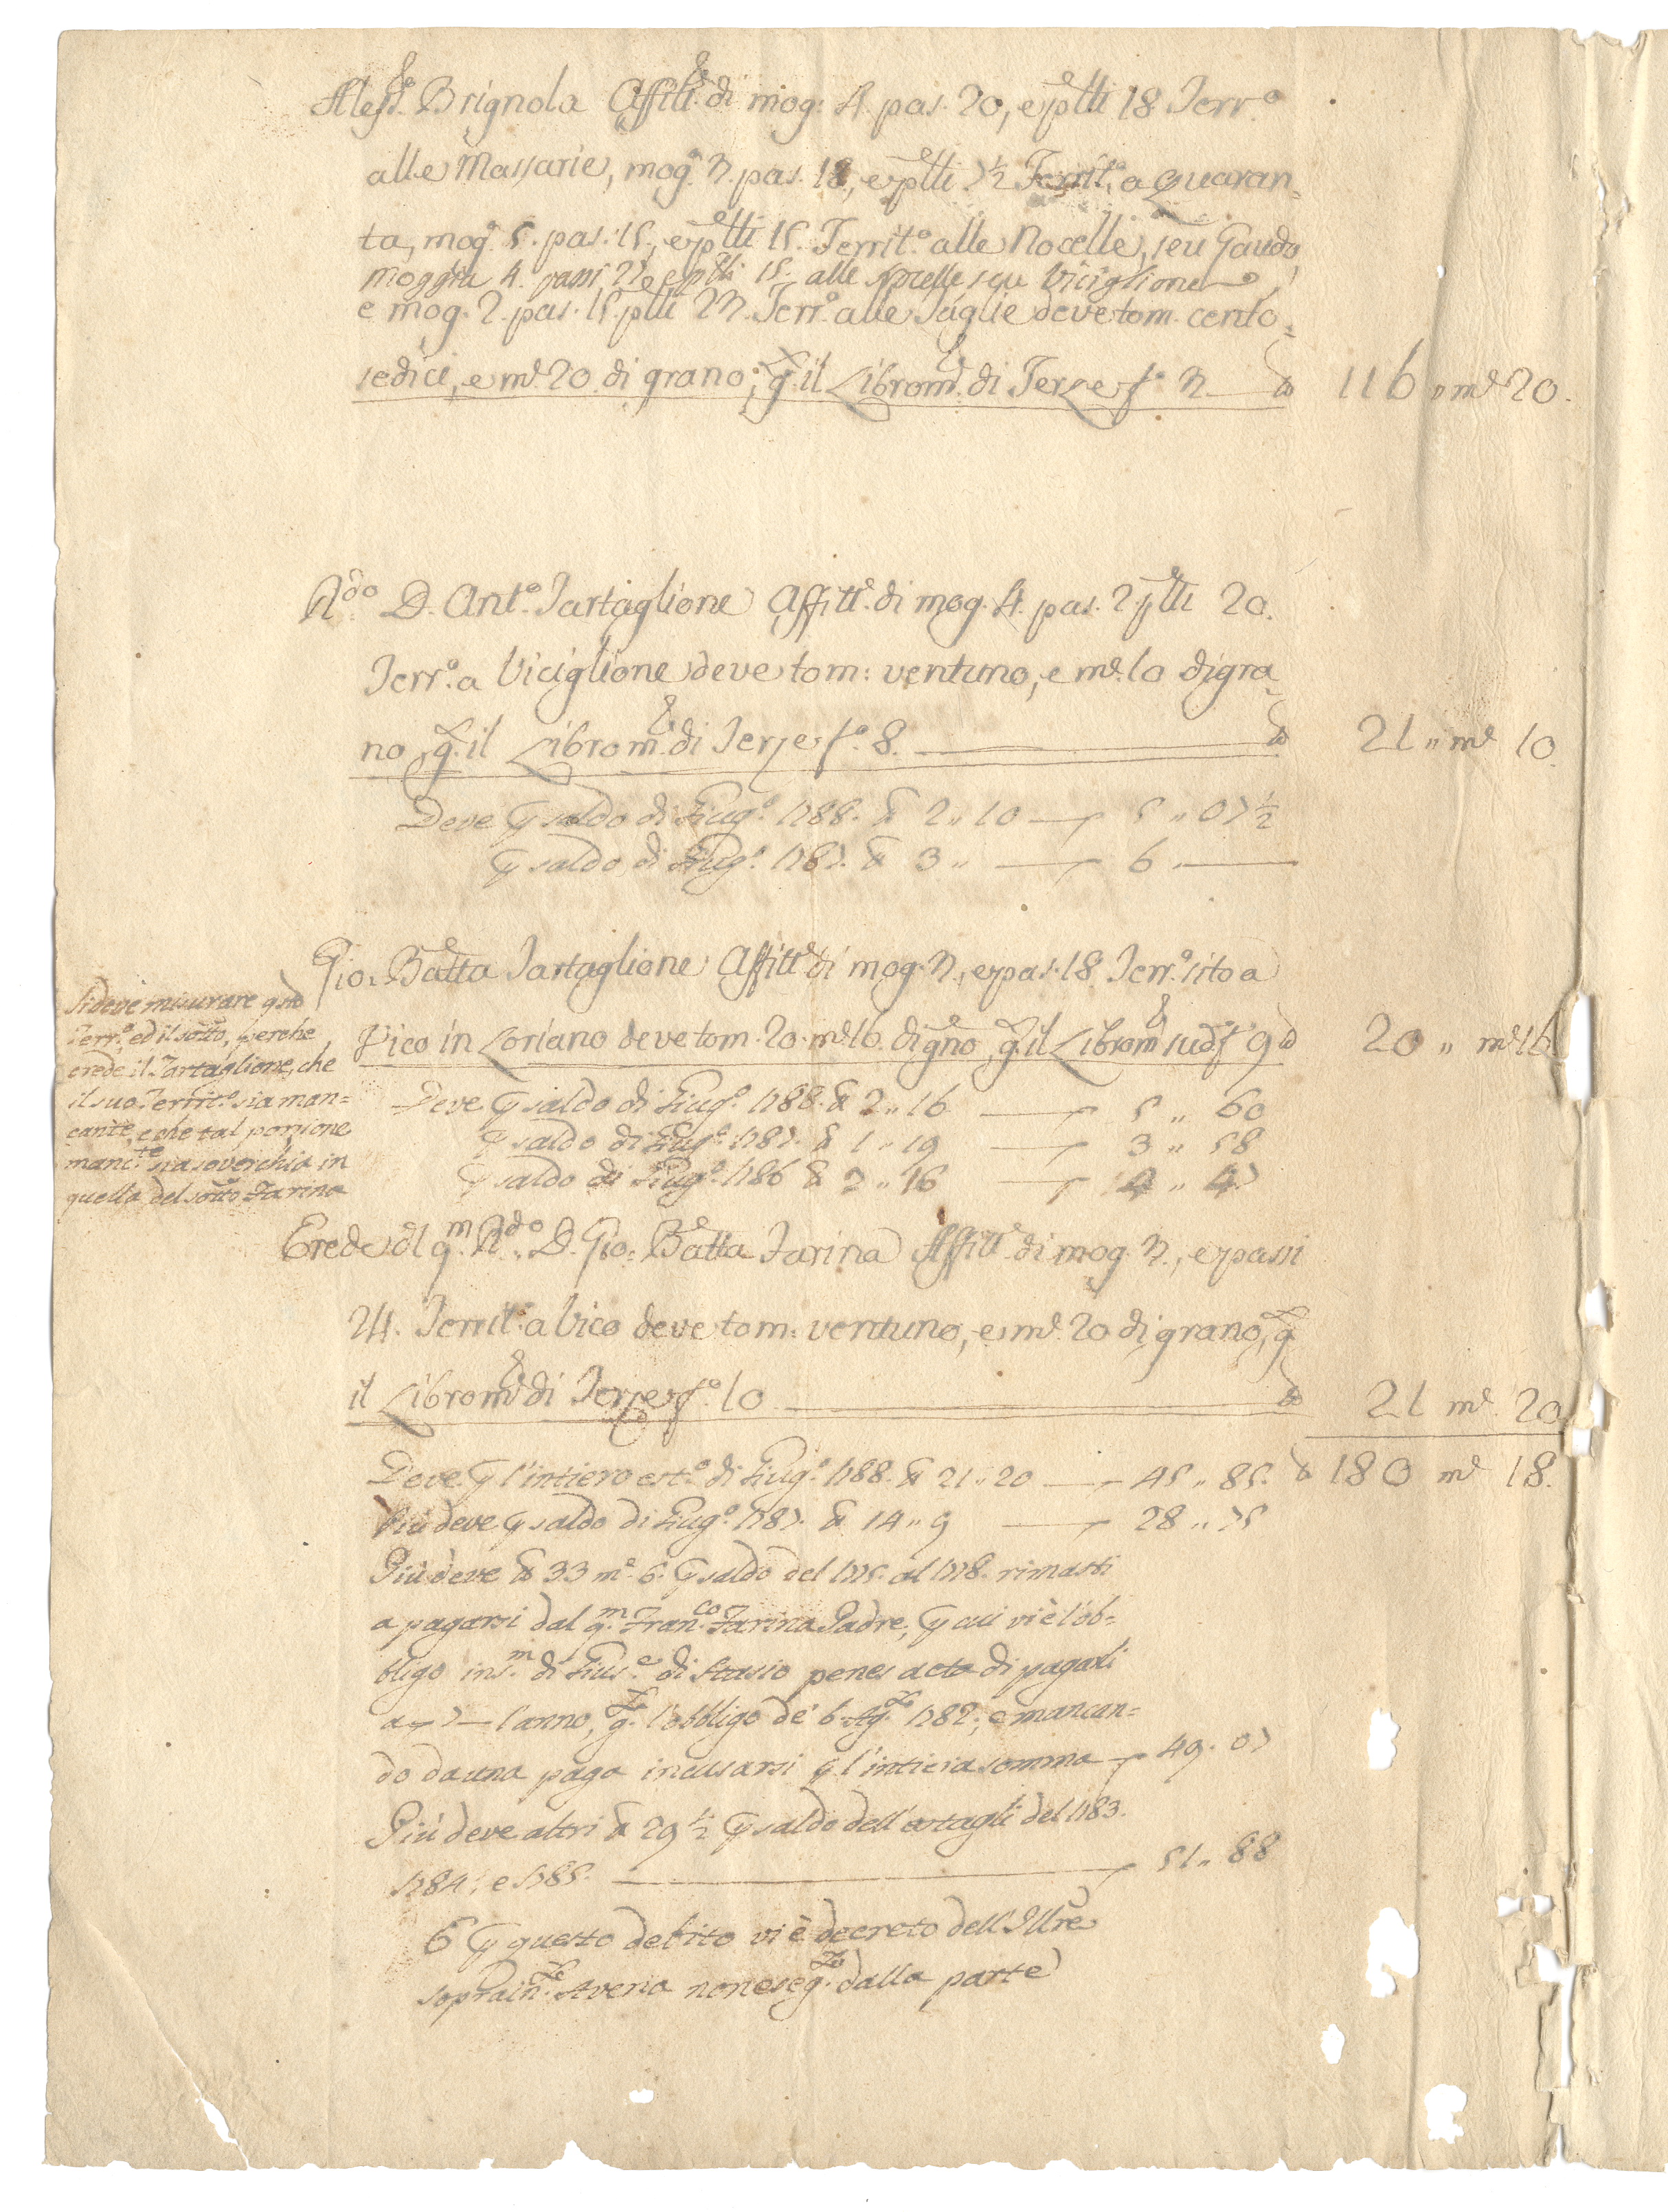 Aless.º Brignola Affitt.e di mog: 4. pas. 20, e ptti 18 Terr.º
alle Massarie, mog.ª 7. pas. 18, e ptti 7½ Territ.º a Quaran=
ta, mog.ª 5. pas. 15, e ptti 15. Territ.º alle Nocelle, seu Gaudo,
moggia 4. passi 22 e ptti 15. alle Nocelle seu Viciglione
e mog. 2. pas. 15. ptti 27. Terr.º alle Taglie deve tom. cento=
sedici, e m.e 20 di grano, g.ª il Libro m.e di Terze f.º 7 — 116 " m.e 20.
R.do D. Ant.º Tartaglione Affitt.e di mog. 4. pas. 2 ptti 20.
Terr.º a Viciglione deve tom: ventuno, e m.e 10 di gra=
no, g.ª il Libro m.e di Terze f.º 8. — 21 " m.e 10.
Deve p saldo di Giug.º 1788. t 2 " 10 — 5 " 07½
p saldo di Giug.º 1787. t 3 " — 6 —
Gio: Batta Tartaglione Affitt.e di mog. 7., e pas. 18 Terr.º sito a
Vico in Loriano deve tom. 20. m.e 16. di gno, g.ª il Libro m.e sud.º f.º 9 20 " m.e 16
Si deve misurare qsto
Terr.º, ed il sotto, perche
crede il Tartaglione, che
il suo Territ.º sia man=
cante, e che tal porzione
manc.te sia soverchia in
quella del sotto Farina
Deve p saldo di Giug.º 1788. t 2 " 16 — 5 " 60
p saldo di Giug.º 1787. t 1 " 19 — 3 " 58
p saldo di Giug.º 1786 t 2 " 16 — 4 " 47
Erede del q.m R.do D. Gio: Batta Farina Affitt.e di mog. 7., e passi
24. Territ.º a Vico deve tom: ventuno, e m.e 20 di grano, g.ª
il Libro m.e di Terze f.º 10 — 21 m.e 20
t 180 m.e 18.
Deve p l'intiero est.º di Giug.º 1788. t 21 " 20 — 45 " 85.
Più deve p saldo di Giug.º 1787. t 14 " 9 — 28 " 75
Più deve t 33 m.e 6. p saldo del 1775. al 1778. rimasti
a pagarsi dal q.m Fran.co Farina Padre, p cui vi è l'ob=
bligo ins.m di Gius.e di Stasio penes acta di pagarli
a 7 — l'anno, g.ª l'obbligo de' 6 Ag.º 1782; e mancan=
do da una paga incusarsi p l'intiera somma — 49. 07
Più deve altri t 29½ p saldo dell'estagli del 1783.
1784, e 1785. — 51 " 88
E p questo debito vi è decreto dell'Illre
soprain.te Avena non eseg.to dalla parte